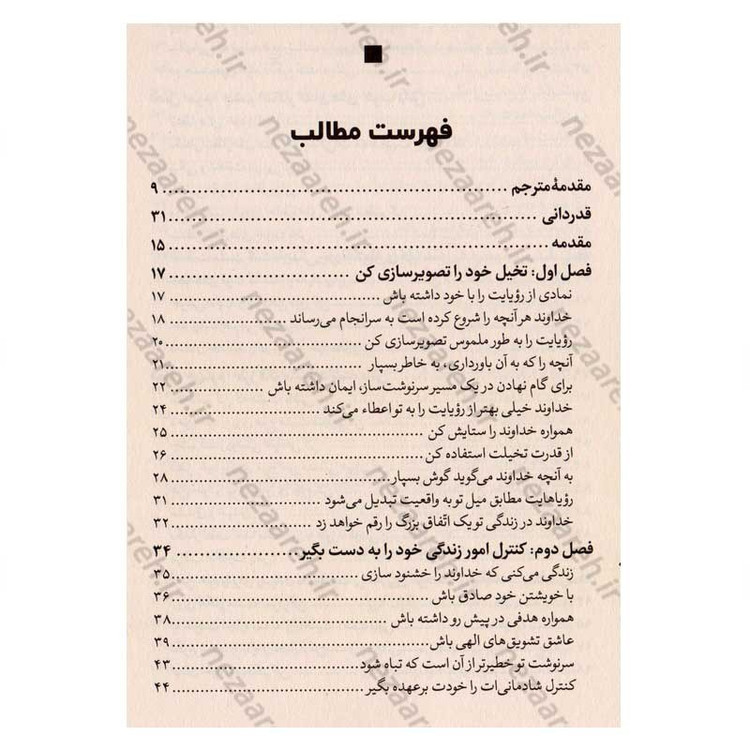 فهرست مطالب
مقدمهٔ مترجم ........ ۹
قدردانی ........ ۳۱
مقدمه ........ ۱۵
فصل اول: تخیل خود را تصویرسازی کن ........ ۱۷
نمادی از رؤیایت را با خود داشته باش ........ ۱۷
خداوند هر آنچه را شروع کرده است به سرانجام می‌رساند ........ ۱۸
رؤیایت را به طور ملموس تصویرسازی کن ........ ۲۰
آنچه را که به آن باورداری، به خاطر بسپار ........ ۲۱
برای گام نهادن در یک مسیر سرنوشت‌ساز، ایمان داشته باش ........ ۲۲
خداوند خیلی بهتر از رؤیایت را به تو اعطاء می‌کند ........ ۲۴
همواره خداوند را ستایش کن ........ ۲۵
از قدرت تخیلت استفاده کن ........ ۲۶
به آنچه خداوند می‌گوید گوش بسپار ........ ۲۸
رؤیاهایت مطابق میل تو به واقعیت تبدیل می‌شود ........ ۳۱
خداوند در زندگی تو یک اتّفاق بزرگ را رقم خواهد زد ........ ۳۲
فصل دوم: کنترل امور زندگی خود را به دست بگیر ........ ۳۴
زندگی می‌کنی که خداوند را خشنود سازی ........ ۳۵
با خویشتن خود صادق باش ........ ۳۶
همواره هدفی در پیش رو داشته باش ........ ۳۸
عاشق تشویق‌های الهی باش ........ ۳۹
سرنوشت تو خطیرتر از آن است که تباه شود ........ ۴۳
کنترل شادمانی‌ات را خودت برعهده بگیر ........ ۴۴
nezaareh.ir